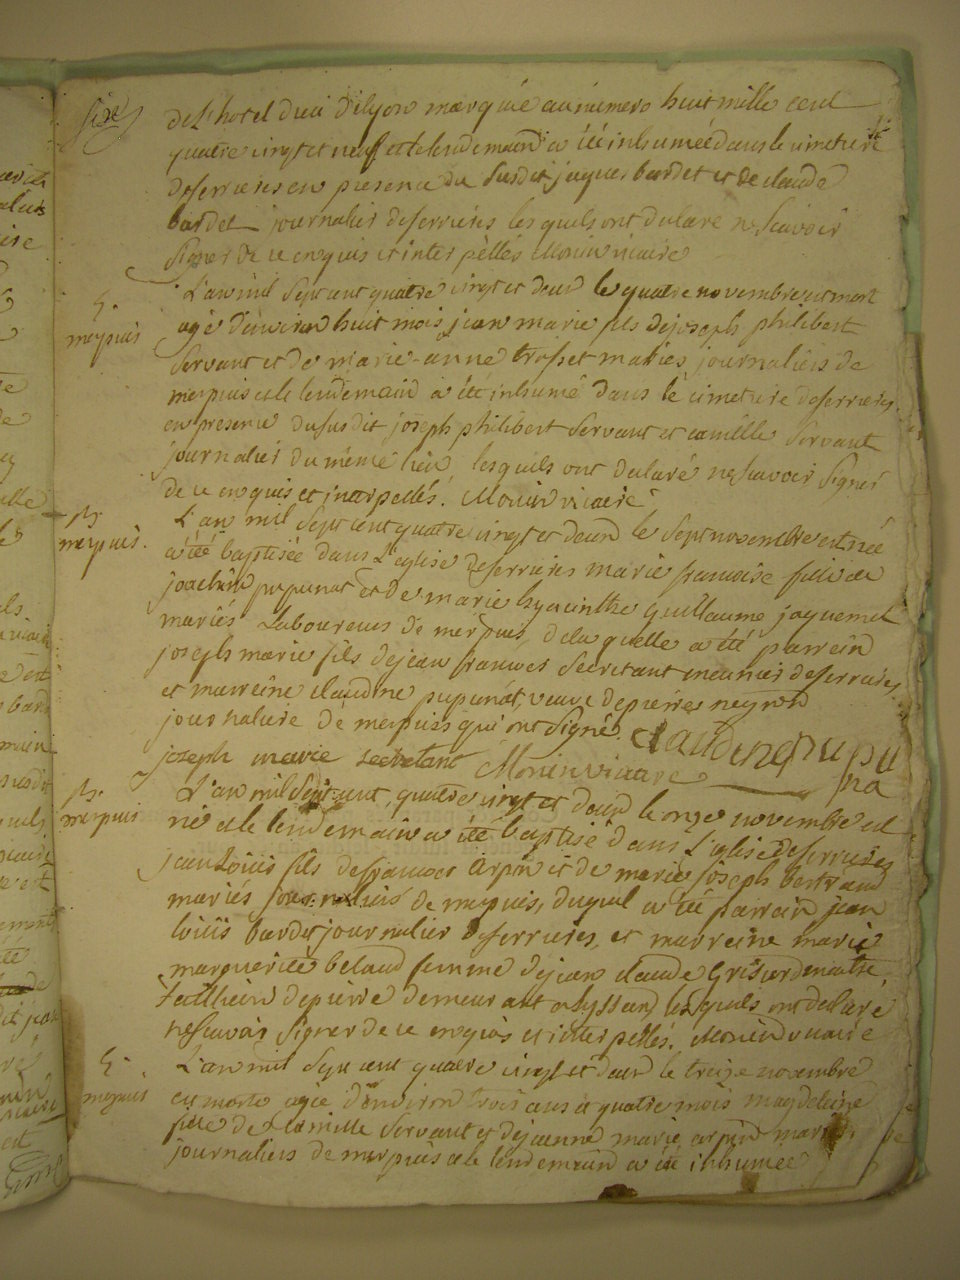 six
de L'hotel dieu de lyon marquée au numero huit mille cent
quatre vingt et neuf et le lendemain a été inhumée dans le cimetiere
deferrieres en presence du susdit jaques bardet et de claude
bardet journalier deferrieres lesquels ont declaré ne scavoir
signer de ce enquis et interpellés Monin vicaire
S.
merpuis
L'an mil sept cent quatre vingt et deux le quatre novembre est mort
agé d'environ huit mois jean marie fils de joseph philibert
servant et de marie-anne trosset mariés journaliers de
merpuis et le lendemain a été inhumé dans le cimetiere deferrieres
en presence du susdit joseph philibert servant et camille servant
journalier du même lieu lesquels ont declaré ne scavoir signer
de ce enquis et interpellés. Monin vicaire
B.
merpuis.
L'an mil sept cent quatre vingt et deux le sept novembre est née
a été baptisée dans L'eglise deferrieres marie francoise fille de
joachim pupunat et de marie hyacinthe guillaume jaquemet
mariés Laboureurs de merpuis, de laquelle a été parrein
joseph marie fils de jean francois secretant meunier deferrieres
et marreine claudine pupunat, veuve de pierres neyron
journaliere de merpuis qui ont signé. claudine pupu
na
joseph marie secretant Monin vicaire
B.
merpuis
L'an mil sept cent quatre vingt et deux le onze novembre est
né et le lendemain a été baptisé dans L'eglise deferrieres
jean Louis fils de francois arpin et de marie joseph bertrand
mariés journaliers de merpuis, duquel a été parrain jean
louis bardet journalier deferrieres, et marreine marie
marguerite belaud femme de jean claude Grisard maitre
de pierre demeurant a lyssard lesquels ont declaré
ne scavoir signer de ce enquis et interpellés. Monin vicaire
S.
merpuis
L'an mil sept cent quatre vingt et deux le treize novembre
est morte agée d'environ trois ans et quatre mois magdeleine
fille de Camille servant et de jeanne marie arpin mariés,
journaliers de merpuis et le lendemain a été inhumée